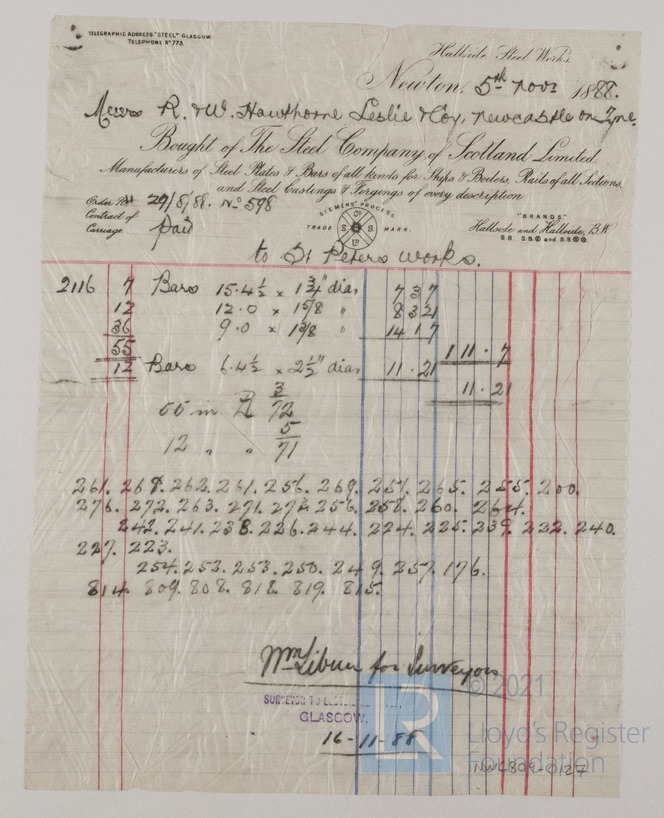 TELEGRAPHIC ADDRESS "STEEL" GLASGOW.
TELEPHONE No 773
Hallside Steel Works,
Newton, 5th Novr 1888.
Messrs R. & W. Hawthorne Leslie & Coy, Newcastle on Tyne.
Bought of The Steel Company of Scotland Limited.
Manufacturers of Steel Plates & Bars of all kinds for Ships & Boilers, Rails of all Sections,
and Steel Castings & Forgings of every description
Order No 29/8/88. No 598
Contract of
Carriage Paid
SIEMENS' PROCESS
TRADE MARK.
Co
S S
LD
"BRANDS"
Hallside and Hallside, B.W
to St Peters Works.
2116 7 Bars 15.4½ x 1¾" dia 7 3 7
12 12.0 x 1⅝ " 8 3 21
36 9.0 x 1⅝ " 14 1 7
55 1 11 . 7
12 Bars 6.4½ x 2½" dia 11 . 21
11 . 21
55 in 3/72
12 " " 5/71
261. 268. 262. 261. 256. 269. 257. 265. 255. 200.
276. 272. 263. 271. 272 256. 258. 260. 264.
242. 241. 238. 226. 244. 224. 225. 239. 232. 240.
227. 223.
254. 253. 253. 250. 249. 257. 176.
814. 809. 808. 818. 819. 815.
Wm for Surveyors
SURVEYOR TO
GLASGOW.
16-11-88
© 2021
LR
Lloyd's Register
Foundation
NWC809-0127